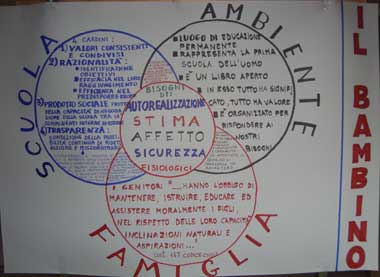 SCUOLA
AMBIENTE
FAMIGLIA
IL BAMBINO
4 CARDINI:
1) VALORI CONSISTENTI
E CONDIVISI
2) RAZIONALITÀ:
IDENTIFICAZIONE
OBIETTIVI
EFFICACIA NEL LORO
RAGGIUNGIMENTO
EFFICIENZA NEL
3) PRODOTTO SOCIALE
4) TRASPARENZA:
LUOGO DI EDUCAZIONE
PERMANENTE
RAPPRESENTA LA PRIMA
SCUOLA DELL'UOMO
È UN LIBRO APERTO
IN ESSO TUTTO HA SIGNIFI
CATO, TUTTO HA VALORE
È ORGANIZZATO PER
RISPONDERE AI
NOSTRI
BISOGNI
BISOGNI
DI
AUTOREALIZZAZIONE
STIMA
AFFETTO
SICUREZZA
FISIOLOGICI
I GENITORI "...HANNO L'OBBLIGO DI
MANTENERE, ISTRUIRE, EDUCARE ED
ASSISTERE MORALMENTE I FIGLI,
NEL RISPETTO DELLE LORO CAPACITÀ
INCLINAZIONI NATURALI E
ASPIRAZIONI..."